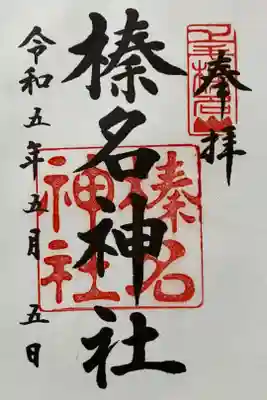 奉拝
榛名神社
榛名神社
令和五年五月五日